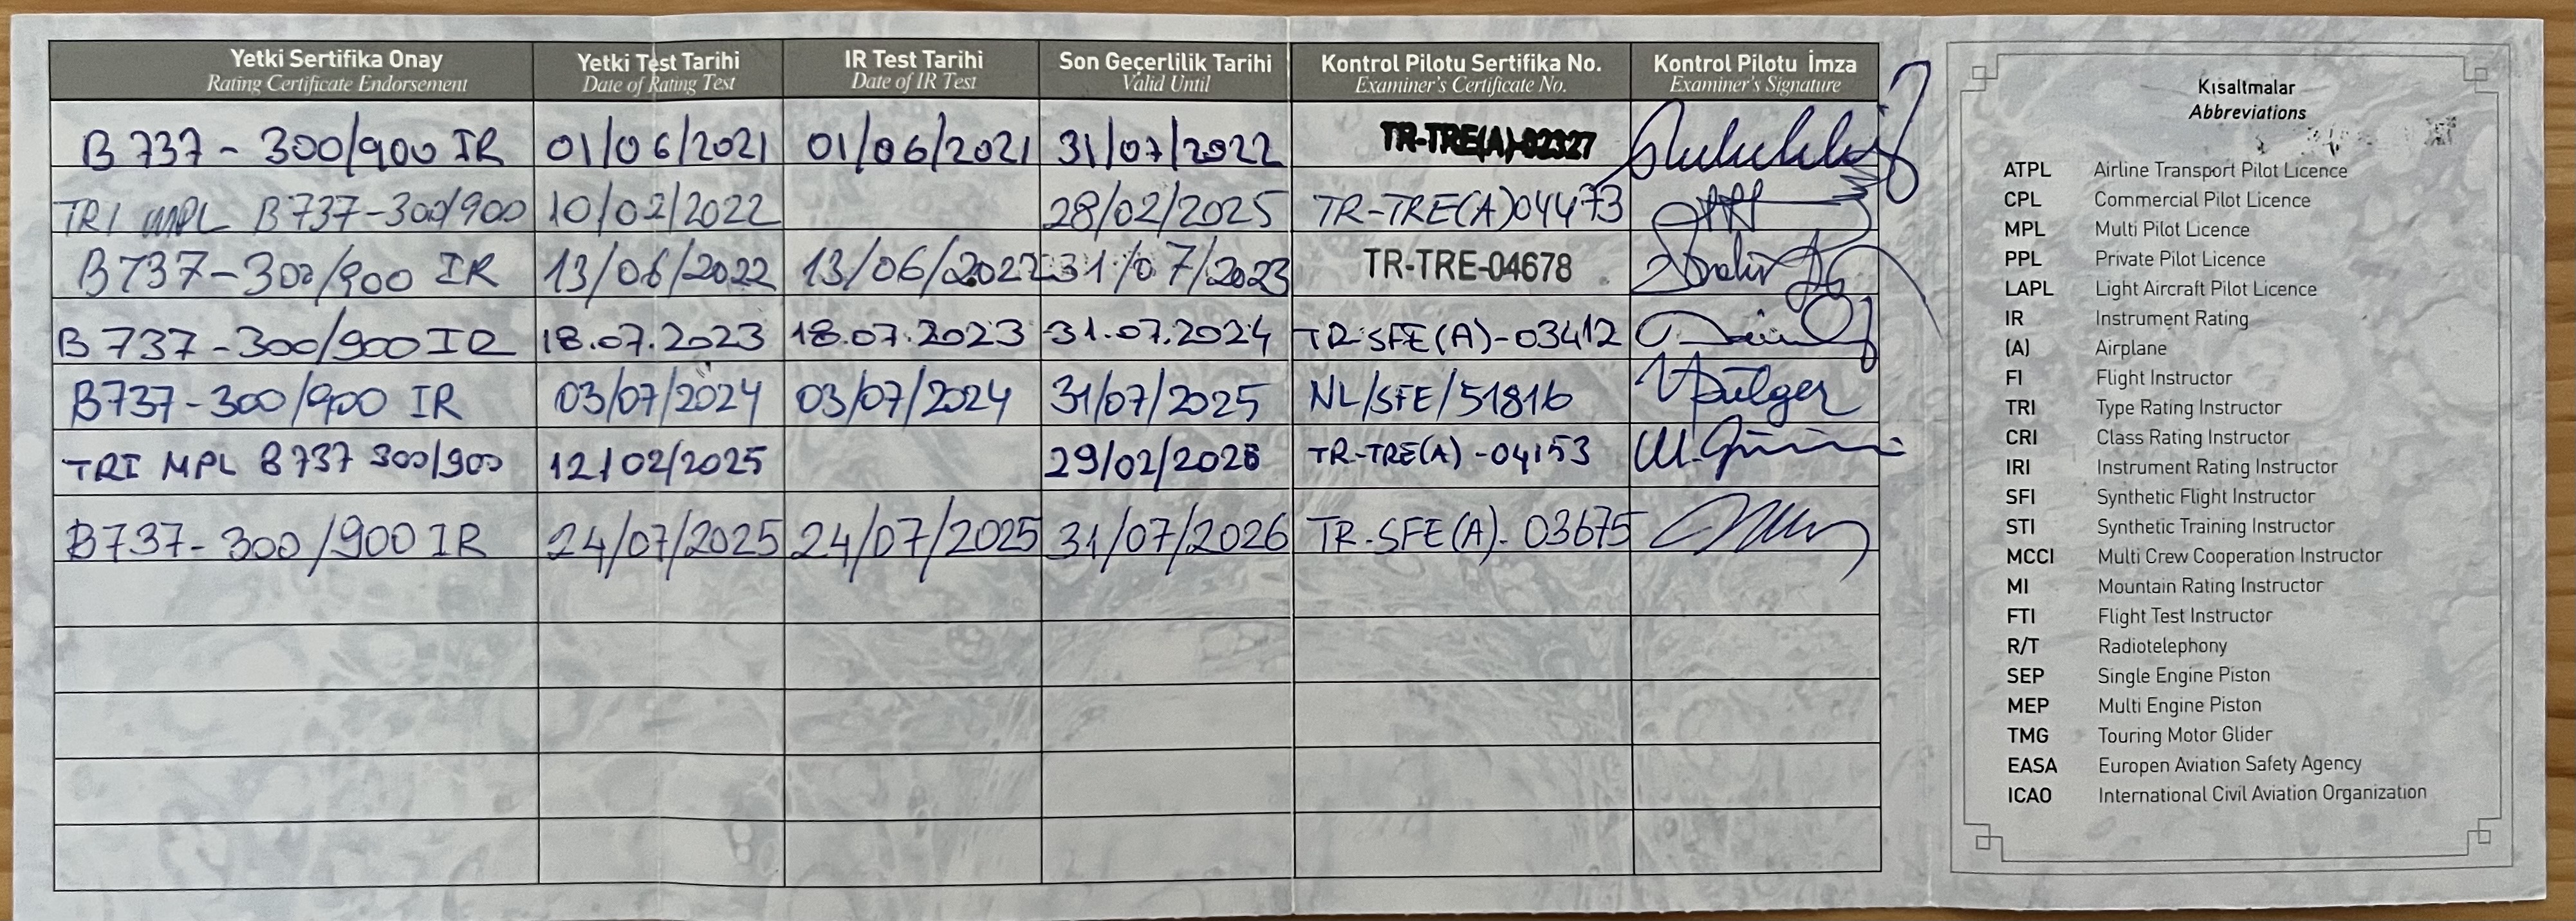 Yetki Sertifika Onay Yetki Test Tarihi IR Test Tarihi Son Geçerlilik Tarihi Kontrol Pilotu Sertifika No. Kontrol Pilotu İmza
Rating Certificate Endorsement Date of Rating Test Date of IR Test Valid Until Examiner's Certificate No. Examiner's Signature
B 737 - 300/900 IR 01/06/2021 01/06/2021 31/07/2022 TR-TRE(A)-02327
TRI MPL B737-300/900 10/02/2022 28/02/2025 TR-TRE(A)04473
B737-300/900 IR 13/06/2022 13/06/2022 31/07/2023 TR-TRE-04678
B 737-300/900 IR 18.07.2023 18.07.2023 31.07.2024 TR-SFE(A)-03412
B737-300/900 IR 03/07/2024 03/07/2024 31/07/2025 NL/SFE/51816
TRI MPL B737 300/900 12/02/2025 TR-TRE(A)-04153
B737-300/900 IR 24/07/2025 24/07/2025 31/07/2026 TR-SFE(A)-03675
Kısaltmalar
Abbreviations
ATPL Airline Transport Pilot Licence
CPL Commercial Pilot Licence
MPL Multi Pilot Licence
PPL Private Pilot Licence
LAPL Light Aircraft Pilot Licence
IR Instrument Rating
(A) Airplane
FI Flight Instructor
TRI Type Rating Instructor
CRI Class Rating Instructor
IRI Instrument Rating Instructor
SFI Synthetic Flight Instructor
STI Synthetic Training Instructor
MCCI Multi Crew Cooperation Instructor
MI Mountain Rating Instructor
FTI Flight Test Instructor
R/T Radiotelephony
SEP Single Engine Piston
MEP Multi Engine Piston
TMG Touring Motor Glider
EASA Europen Aviation Safety Agency
ICAO International Civil Aviation Organization